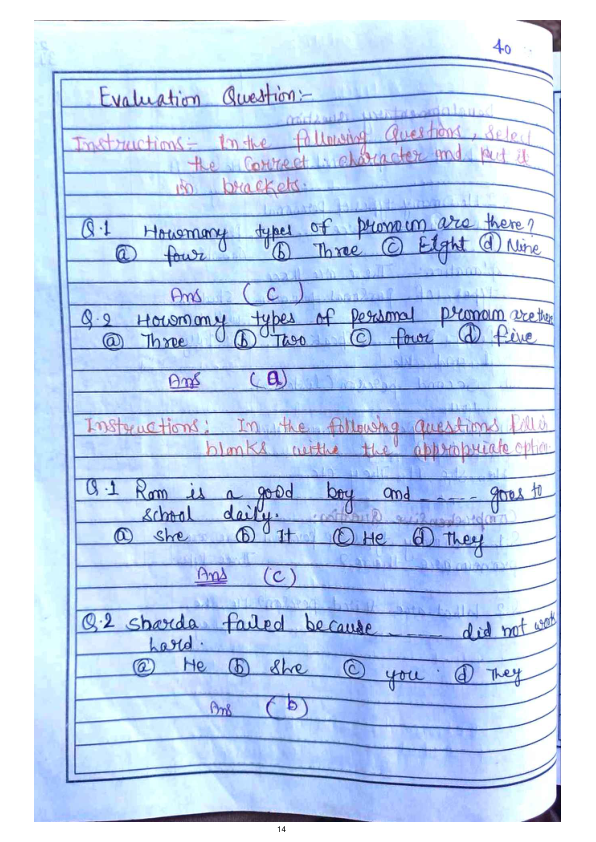 40
Evaluation Question:-
Instructions:- In the following Questions, select
the correct character and put it
in brackets.
Q.1 Howmany types of pronoun are there?
(a) four (b) Three (c) Eight (d) Nine
Ans (c)
Q.2 Howmany types of personal pronoun are there
(a) Three (b) Two (c) four (d) five
Ans (a)
Instructions: In the following questions fill in
blanks withe the appropriate option.
Q.1 Ram is a good boy and ----- goes to
school daily.
(a) She (b) It (c) He (d) They
Ans (c)
Q.2 Sharda failed because ----- did not work
hard.
(a) He (b) She (c) you. (d) They
Ans (b)
14